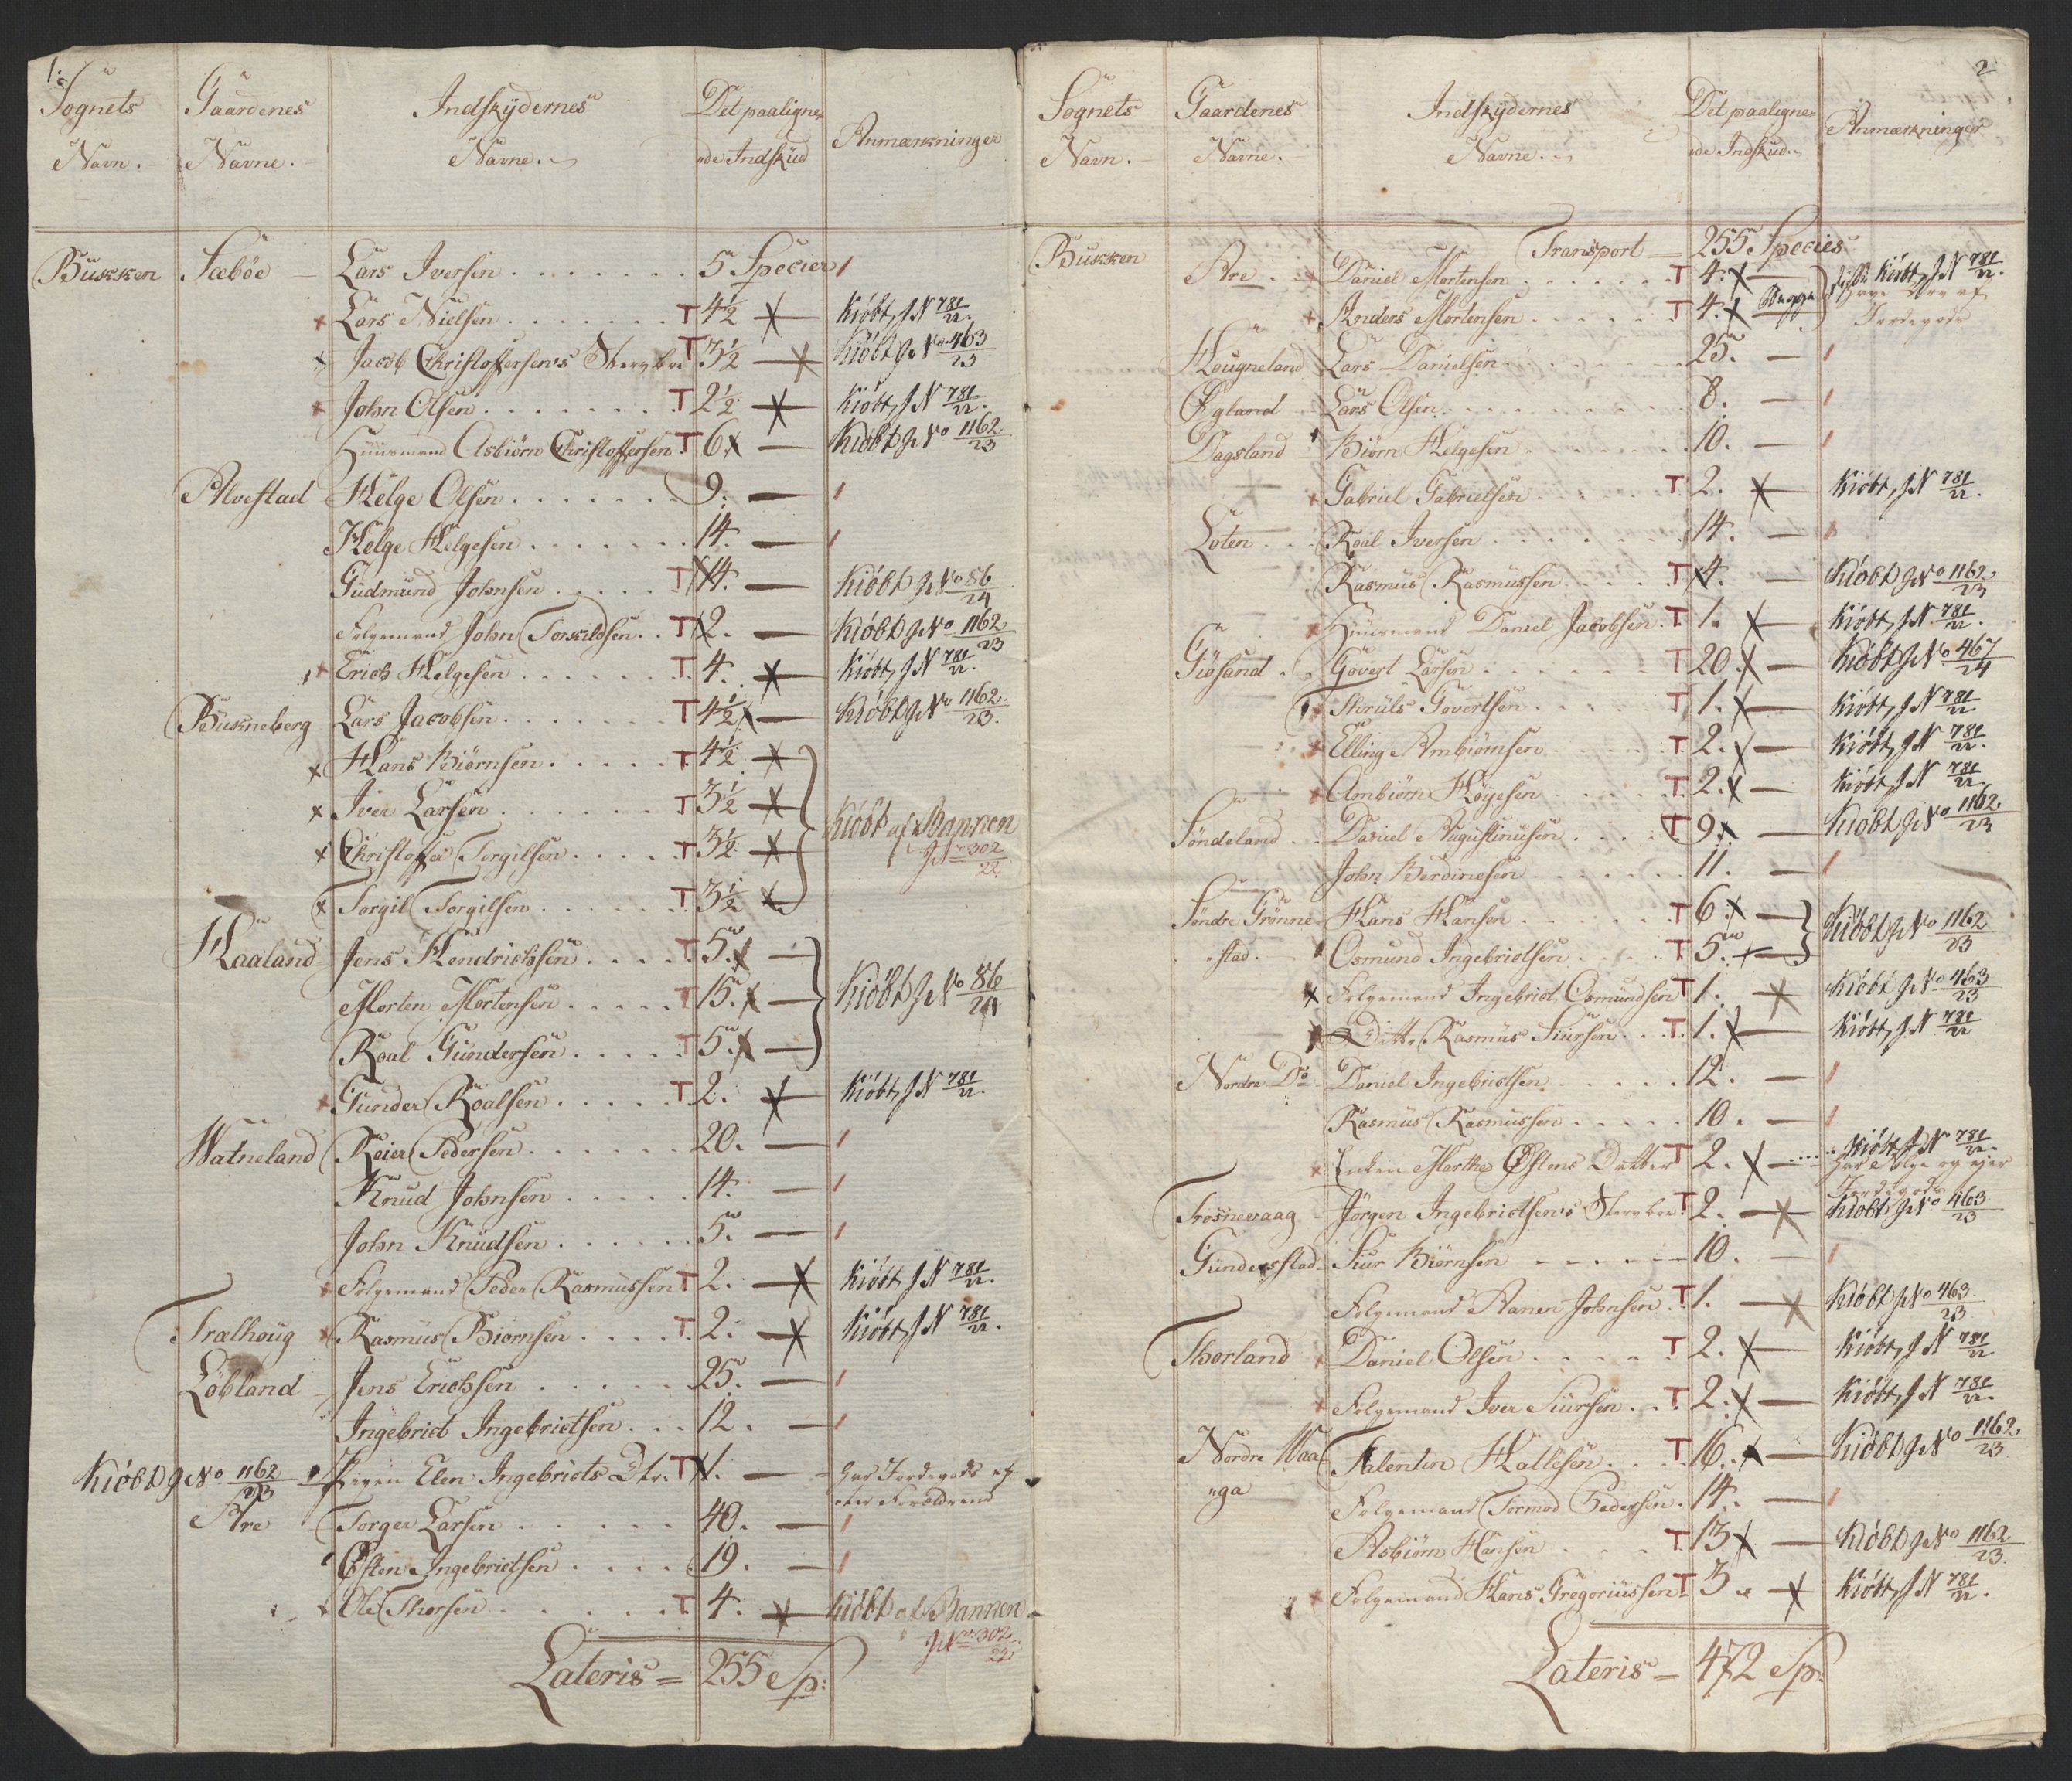 1.
Sognets Navn. Gaardenes Navne. Indskydernes Navne. Det paaligne- nde Indskud Anmærkninger
Bukken Sæböe Lars Iversen 5 Specier
Lars Nielsen T 4½ Kiöbt, J N 781/22.
Jacob Christoffersens Stervboe T 3½ Kiöbt J No 463/23
John Olsen T 2½ Kiöbt, J N 781/22.
Huusmand Asbiörn Christoffersen T 6 Kiöbt J No 1162/23
Alvestad Helge Olsen 9.
Helge Helgesen 14.
Gudmund Johnsen T 14. Kiöbt J No 86/24
Folgemand John Torkildsen T 2. Kiöbt J No 1162/23
Erich Helgesen T 4. Kiöbt, J N 781/22.
Bukneberg Lars Jacobsen T 4½ Kiöbt J No 1162/23.
Hans Biörnsen T 4½
Iver Larsen T 3½
Kiöbt af Bannen
Christoffer Torgilsen T 3½ J No 302/22
Torgil Torgilsen T 3½
Haaland Jens Hendrichsen T 5.
Morten Mortensen T 15. Kiöbt J No 86/24
Roal Gundersen T 5.
Gunder Roalsen T 2. Kiöbt, J N 781/22.
Watneland Reier Pedersen 20.
Knud Johnsen 14.
John Knudsen 5.
Folgemand Peder Rasmussen T 2. Kiöbt J N 781/22.
Trælhoug Rasmus Biörnsen T 2. Kiöbt, J N 781/22.
Löbland Jens Erichsen 25.
Ingebrict Ingebrictsen 12.
Kiöbt J No 1162/23 Elen Ingebricts Dtr. T 1. har Jordegods ef-
ter Forældrene
Are Torger Larsen 40.
Östen Ingebrictsen 19.
Ole Thorsen T 4. Kiöbt af Bannen
J No 302/22
Lateris = 255 Sp:
2
Sognets Navn. Gaardenes Navne. Indskydernes Navne. Det paaligne- nde Indskud. Anmærkninger
Bukken Transport 255. Species
Are Daniel Mortensen T 4. Kiöbt, J N 781/22.
Anders Mortensen T 4. Begge
Jordegods
Hougneland Lars Danielsen 25.
Øgland Lars Olsen 8.
Dagsland Biörn Helgesen 10.
Gabriel Gabrielsen T 2. Kiöbt, J N 781/22.
Loten Roal Iversen 14.
Rasmus Rasmussen T 4. Kiöbt J No 1162/23
Huusmand Daniel Jacobsen T 1. Kiöbt, J N 781/22.
Giösand Govert Larsen T 20. Kiöbt J No 467/24
Thruls Govertsen T 1. Kiöbt, J N 781/22
Elling Ambiörnsen T 2. Kiöbt, J N 781/22.
Ambiörn Höyesen T 2. Kiöbt, J N 781/22.
Söndeland Daniel Augustinusen T 9. Kiöbt J No 1162/23
John Berdinesen 11.
Söndre Grönne- Hans Hansen T 6.
Kiöbt J No 1162/23
stad. Osmund Ingebrictsen T 5.
Folgemand Ingebrict Osmundsen T 1. Kiöbt J No 463/23
Ditto Rasmus Siursen T 1. Kiöbt, J N 781/22
Nordre Do Daniel Ingebrictsen 12.
Rasmus Rasmussen 10.
Enken Marthe Østens Datter T 2. Kiöbt J N 781/22.
har Folge og ejer
Jordegods
Trosnevaag Jörgen Ingebrictsens Stervboe T 2. Kiöbt J No 463/23
Gunderstad Siur Biörnsen 10.
Folgemand Aanen Johnsen T 1. Kiöbt J No 463/23
Thorland Daniel Olsen T 2. Kiöbt, J N 781/22
Folgemand Iver Siursen T 2. Kiöbt, J N 781/22.
Nordre Waa- Falentin Hallesen T 16. Kiöbt J No 1162/23
ga Folgemand Tormod Pedersen 14.
Asbiörn Hansen T 13 Kiöbt J No 1162/23.
Folgemand Hans Gregoriussen T 3 Kiöbt, J N 781/22.
Lateris = 472 Sp: